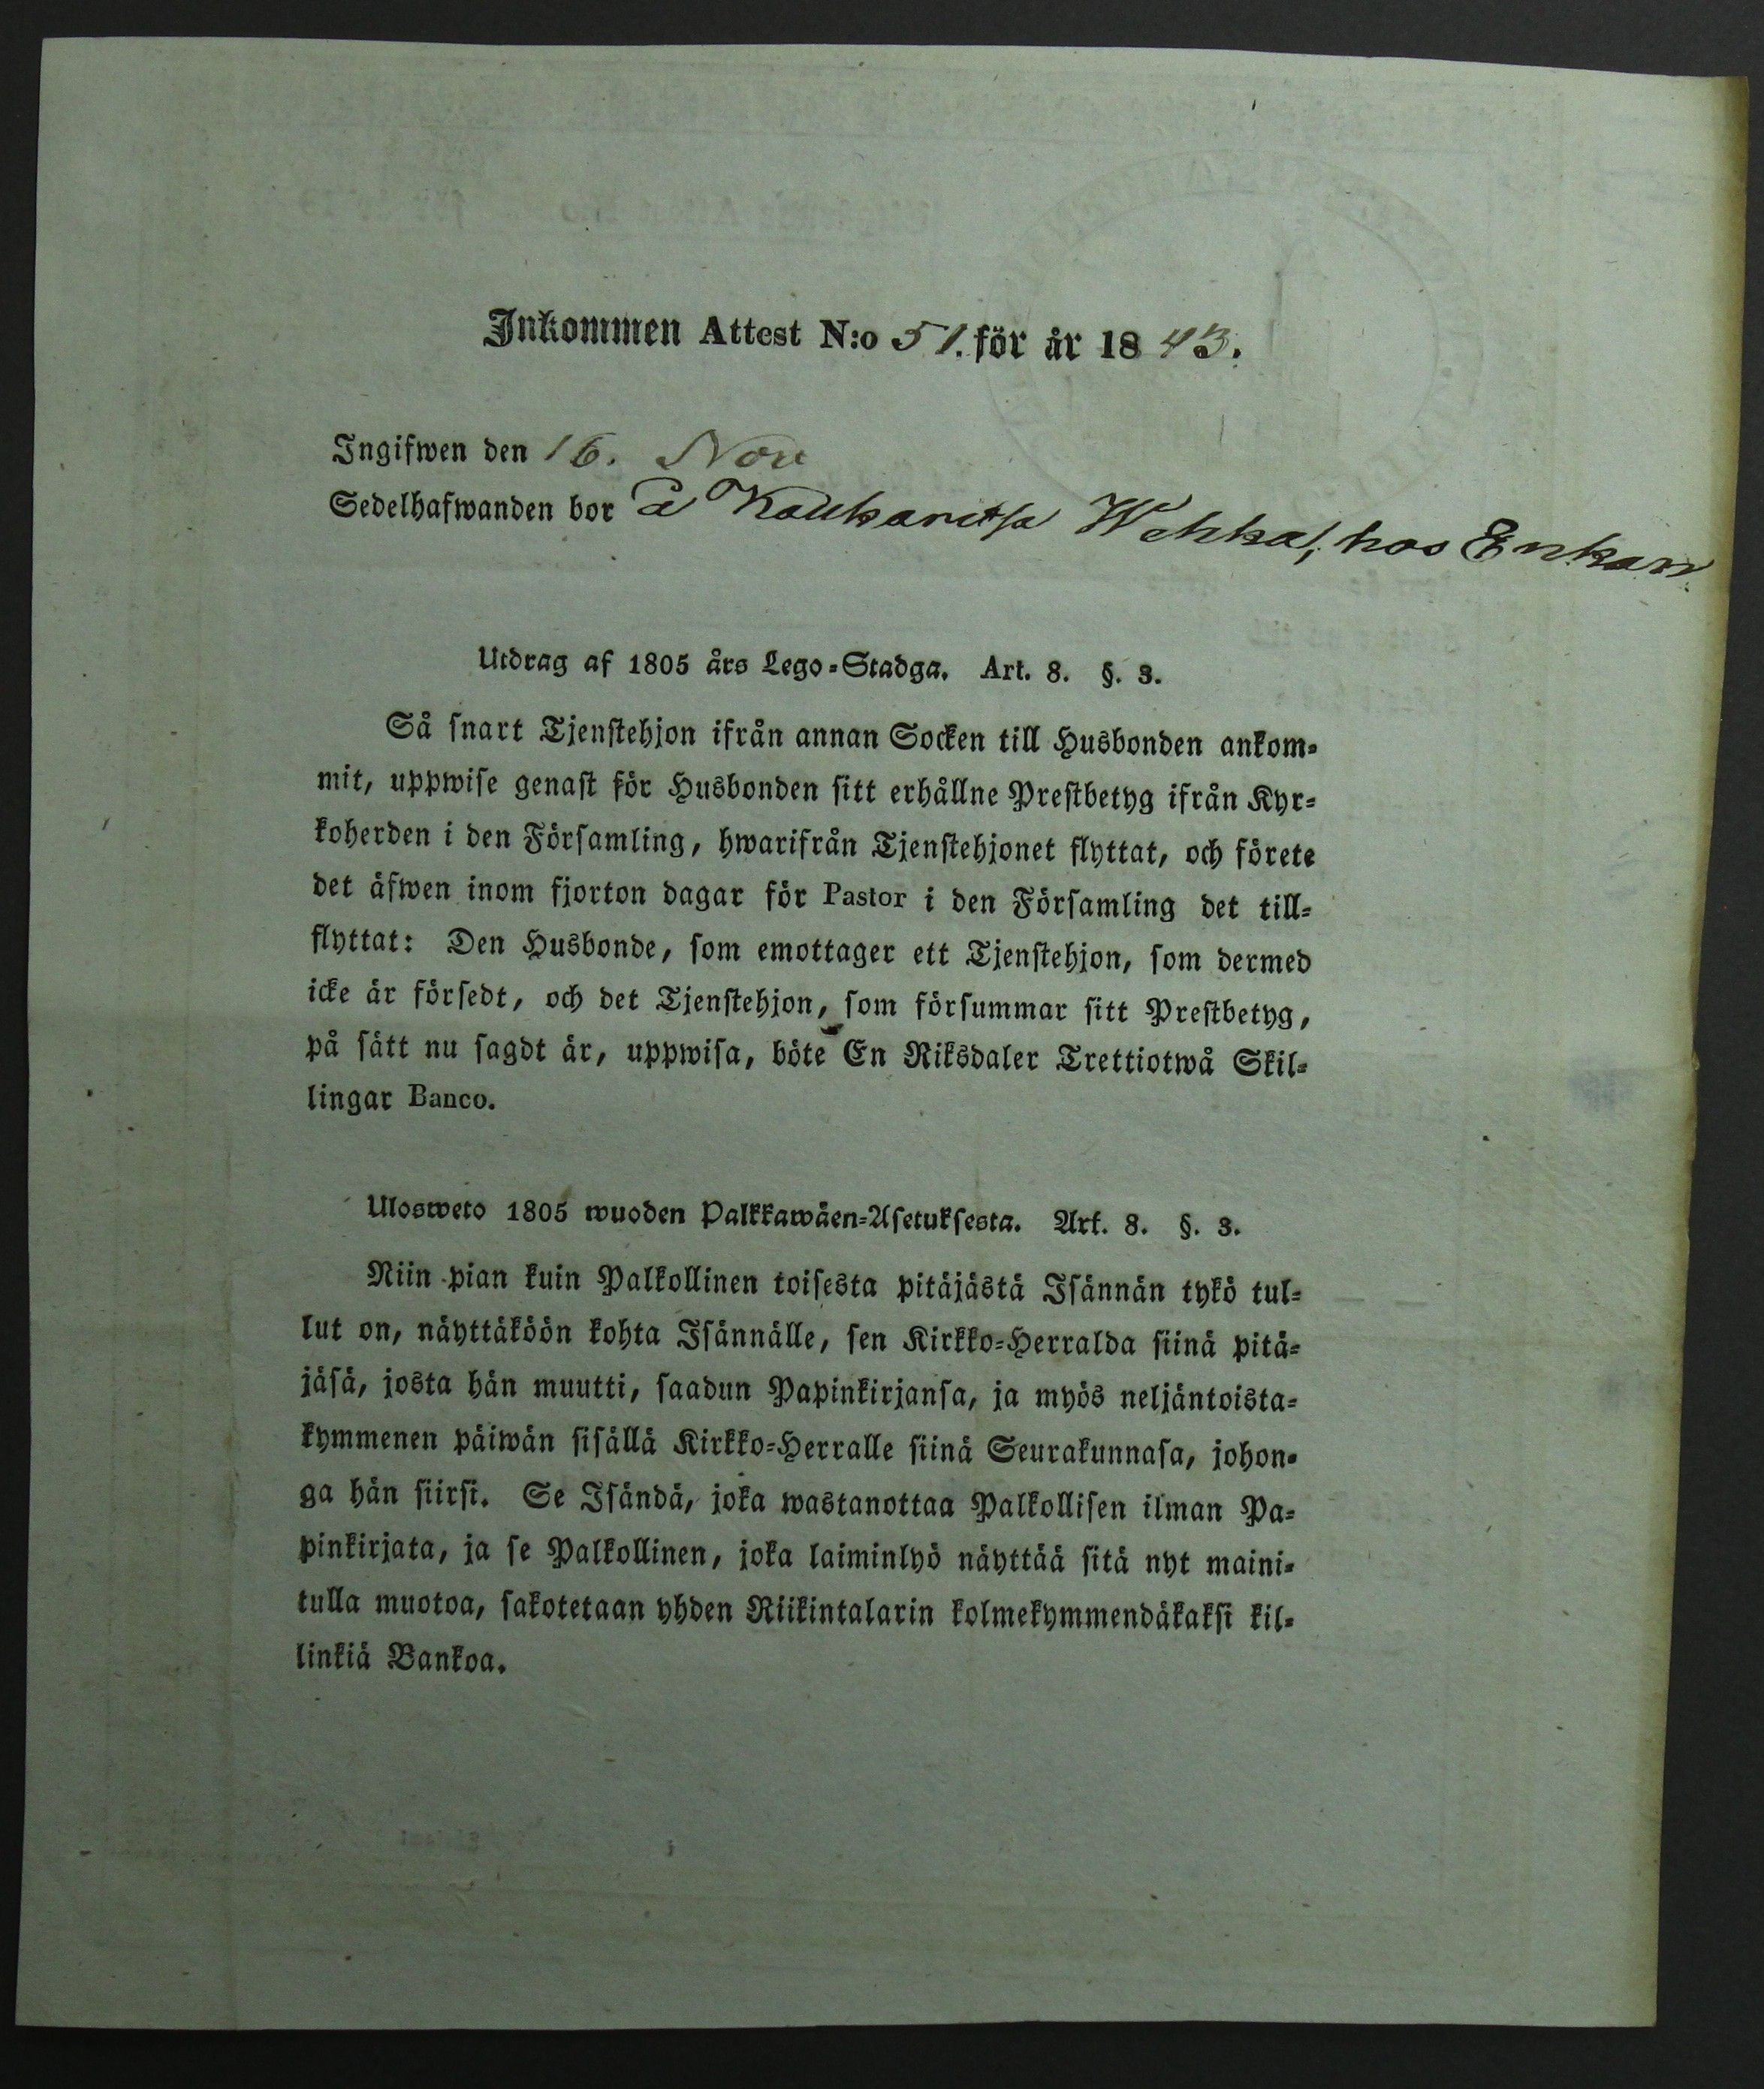 Inkommen Attest N:o 51. för år 1843.
Ingifwen den 16. Nov
Sedelhafwanden bor å Kaukaritsa Wehka, hos Enkan
Utdrag af 1805 års Lego-Stadga. Art. 8. §. 3.
Så snart Tjenstehjon ifrån annan Socken till Husbonden ankom-
mit, uppwise genast för Husbonden sitt erhållne Prestbetyg ifrån Kyr-
koherden i den Församling, hwarifrån Tjenstehjonet flyttat, och förete
det äfwen inom fjorton dagar för Pastor i den Församling det till-
flyttat: Den Husbonde, som emottager ett Tjenstehjon, som dermed
icke är försedt, och det Tjenstehjon, som försummar sitt Prestbetyg,
på sätt nu sagdt är, uppwisa, böte En Riksdaler Trettiotwå Skil-
lingar Banco.
Ulosweto 1805 wuoden Palkkawäen-Asetuksesta. Art. 8. §. 3.
Niin pian kuin Palkollinen toisesta pitäjästä Isännän tykö tul-
lut on, näyttäköön kohta Isännälle, sen Kirkko-Herralda siinä pitä-
jäsä, josta hän muutti, saadun Papinkirjansa, ja myös neljäntoista-
kymmenen päiwän sisällä Kirkko-Herralle siinä Seurakunnasa, johon-
ga hän siirsi. Se Isändä, joka wastanottaa Palkollisen ilman Pa-
pinkirjata, ja se Palkollinen, joka laiminlyö näyttää sitä nyt maini-
tulla muotoa, sakotetaan yhden Riikintalarin kolmekymmendäkaksi kil-
linkiä Bankoa.